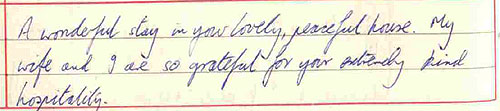 A wonderful stay in your lovely, peaceful house. My
wife and I are so grateful for your extremely kind
hospitality.